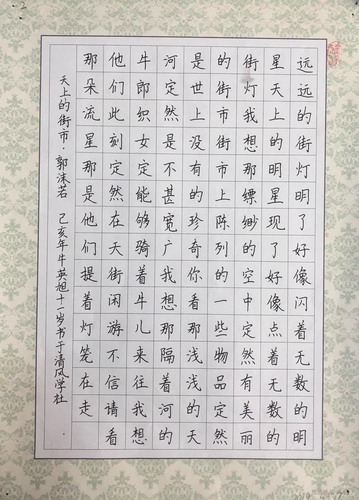 远远的街灯明了好像闪着无数的明
星天上的明星现了好像点着无数的
街灯我想那缥缈的空中定然有美丽
的街市街市上陈列的一些物品定然
是世上没有的珍奇你看那浅浅的天
河定然是不甚宽广我想那隔着河的
牛郎织女定能够骑着牛儿来往我想
他们此刻定然在天街闲游不信请看
那朵流星那是他们提着灯笼在走
天上的街市·郭沫若 己亥年牛英旭十一岁书于清风学社